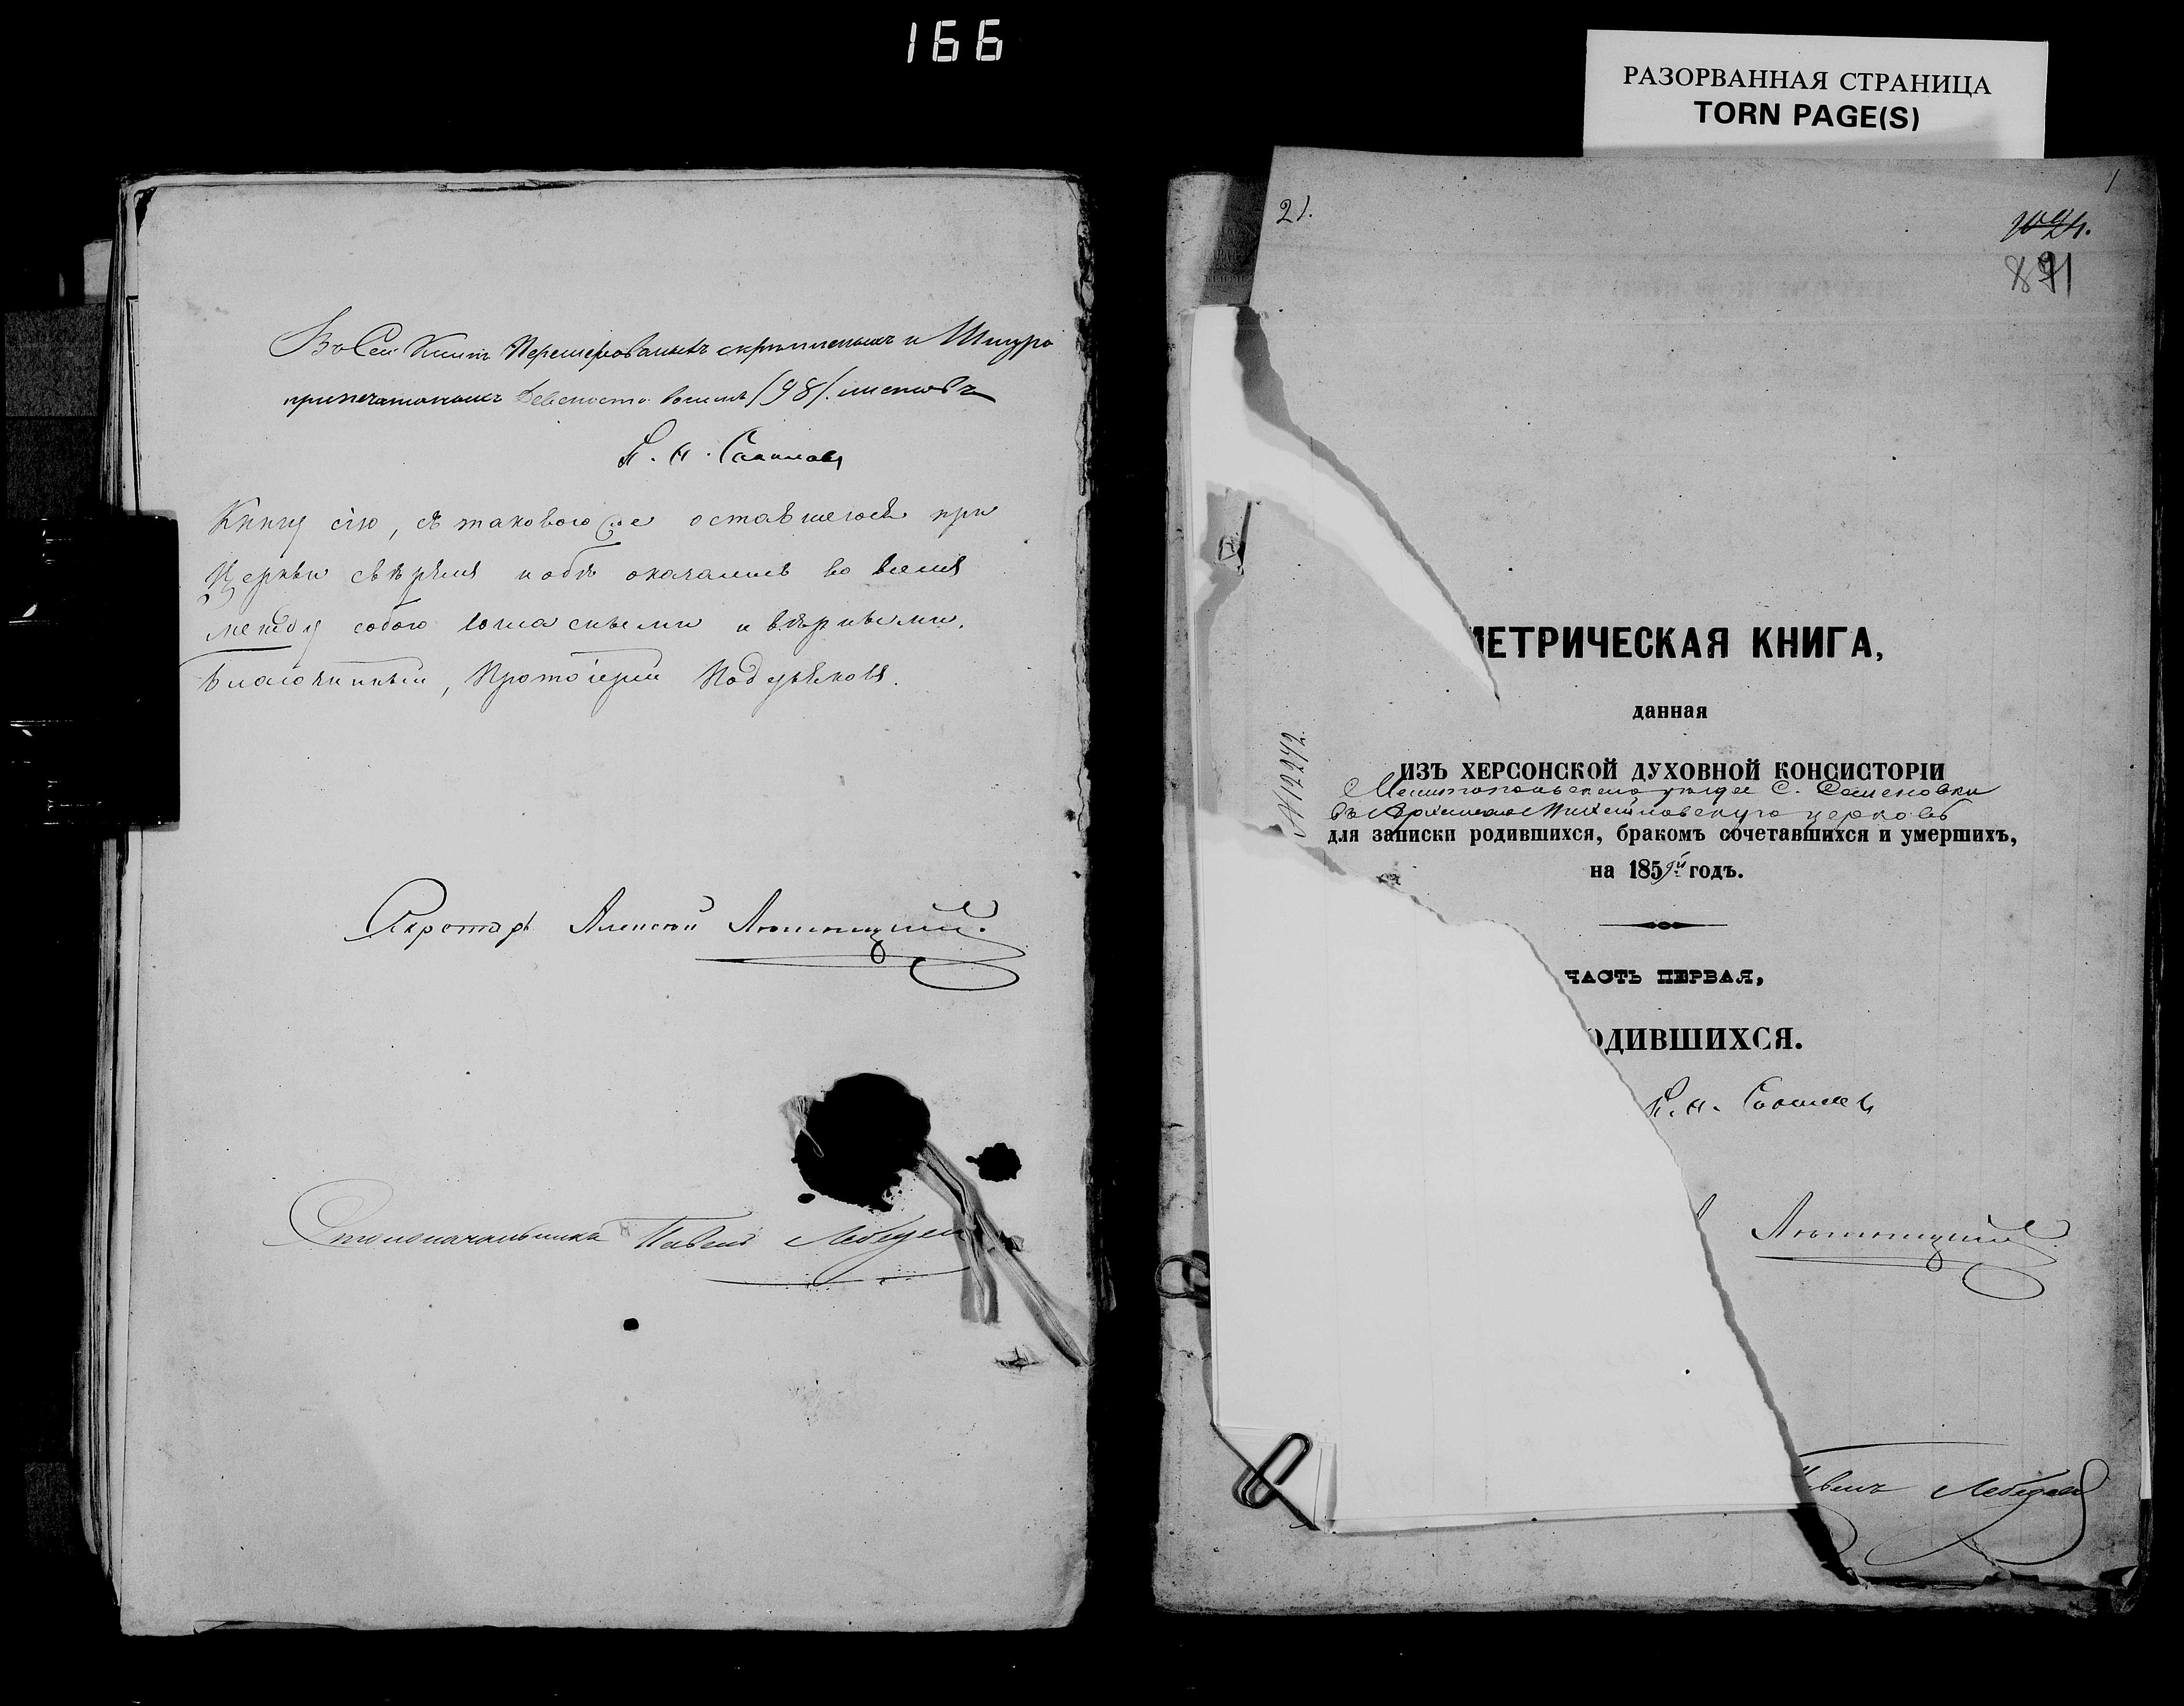 166
РАЗОРВАННАЯ СТРАНИЦА
TORN PAGE(S)
Въ Сей Книгѣ Перенумерованныхъ скрѣпленныхъ и Шнуро
припечатанныхъ Девяносто восемь /98/. листовъ
Книгу сію, съ таковою же оставшеюся при
Церкви свѣрялъ и обѣ оказались во всемъ
между собою согласными и вѣрными.
Благочинный, Протоіерей
Секретарь Алексѣй
Столоначальникъ Павелъ Лебедев
21.
1
891
№ 12242.
МЕТРИЧЕСКАЯ КНИГА,
данная
ИЗЪ ХЕРСОНСКОЙ ДУХОВНОЙ КОНСИСТОРІИ
Мелитопольскаго уѣзда С. Семеновки
въ Архангело Михайловскую церковь
для записки родившихся, бракомъ сочетавшихся и умершихъ,
на 1859й годъ.
ЧАСТЬ ПЕРВАЯ,
ОДИВШИХСЯ.
велъ Лебедев